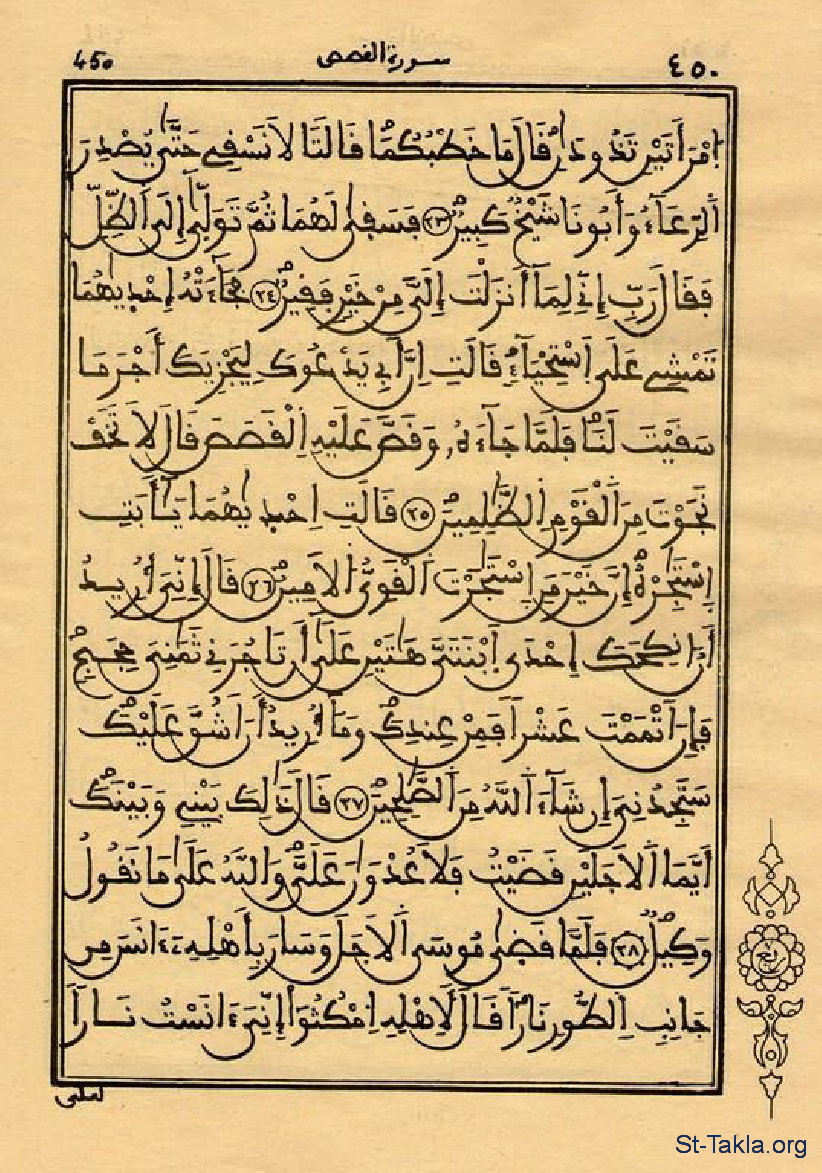 450 سورة القصص ٤٥٠
اِمْرَأَتَيْنِ تَذُودَٰنِ قَالَ مَا خَطْبُكُمَا قَالَتَا لَا نَسْقِے حَتَّىٰ يُصْدِرَ
اَ۬لرِّعَآءُ وَأَبُونَا شَيْخٌ كَبِيرٌ ٢٣ فَسَقِىٰ لَهُمَا ثُمَّ تَوَلَّىٰٓ إِلَى اَ۬لظِّلِّ
فَقَالَ رَبِّ إِنِّے لِمَآ أَنزَلْتَ إِلَىَّ مِنْ خَيْرٍ فَقِيرٌ ٢٤ فَجَآءَتْهُ إِحْدٜيٰهُمَا
تَمْشِے عَلَى اَ۪سْتِحْيَآءٍ قَالَتِ اِنَّ أَبِے يَدْعُوكَ لِيَجْزِيَكَ أَجْرَ مَا
سَقَيْتَ لَنَا فَلَمَّا جَآءَهُۥ وَقَصَّ عَلَيْهِ اِ۬لْقَصَصَ قَالَ لَا تَخَفْ
نَجَوْتَ مِنَ اَ۬لْقَوْمِ اِ۬لظَّٰلِمِينَ ٢٥ قَالَتِ اِحْدٜيٰهُمَا يَٰٓأَبَتِ
اِ۪سْتَٰجِرْهُ إِنَّ خَيْرَ مَنِ اِ۪سْتَٰجَرْتَ اَ۬لْقَوِىُّ اُ۬لَامِينُ ٢٦ قَالَ إِنِّىَ أُرِيدُ
أَنُ ا۟نكِحَكَ إِحْدَى اَ۪بْنَتَىَّ هَٰتَيْنِ عَلَىٰٓ أَن تَاجُرَنِے ثَمَٰنِىَ حِجَجٍ
فَإِنَ اَتْمَمْتَ عَشْراً فَمِنْ عِندِكَ وَمَآ أُرِيدُ أَنَ اَشُقَّ عَلَيْكَ
سَتَجِدُنِىَ إِن شَآءَ اَ۬للَّهُ مِنَ اَ۬لصَّٰلِحِينَ ٢٧ قَالَ ذَٰلِكَ بَيْنِے وَبَيْنَكَ
أَيَّمَا اَ۬لَاجَلَيْنِ قَضَيْتُ فَلَا عُدْوَٰنَ عَلَىَّ وَاللَّهُ عَلَىٰ مَا نَقُولُ
وَكِيلٌ ٢٨ فَلَمَّا قَضِىٰ مُوسَى اَ۬لَاجَلَ وَسَارَ بِأَهْلِهِۦٓ ءَانَسَ مِن
جَانِبِ اِ۬لطُّورِ نَاراً قَالَ لِأَهْلِهِ اِ۟مْكُثُوٓاْ إِنِّىَ ءَانَسْتُ نَاراً
لعلى
St-Takla.org